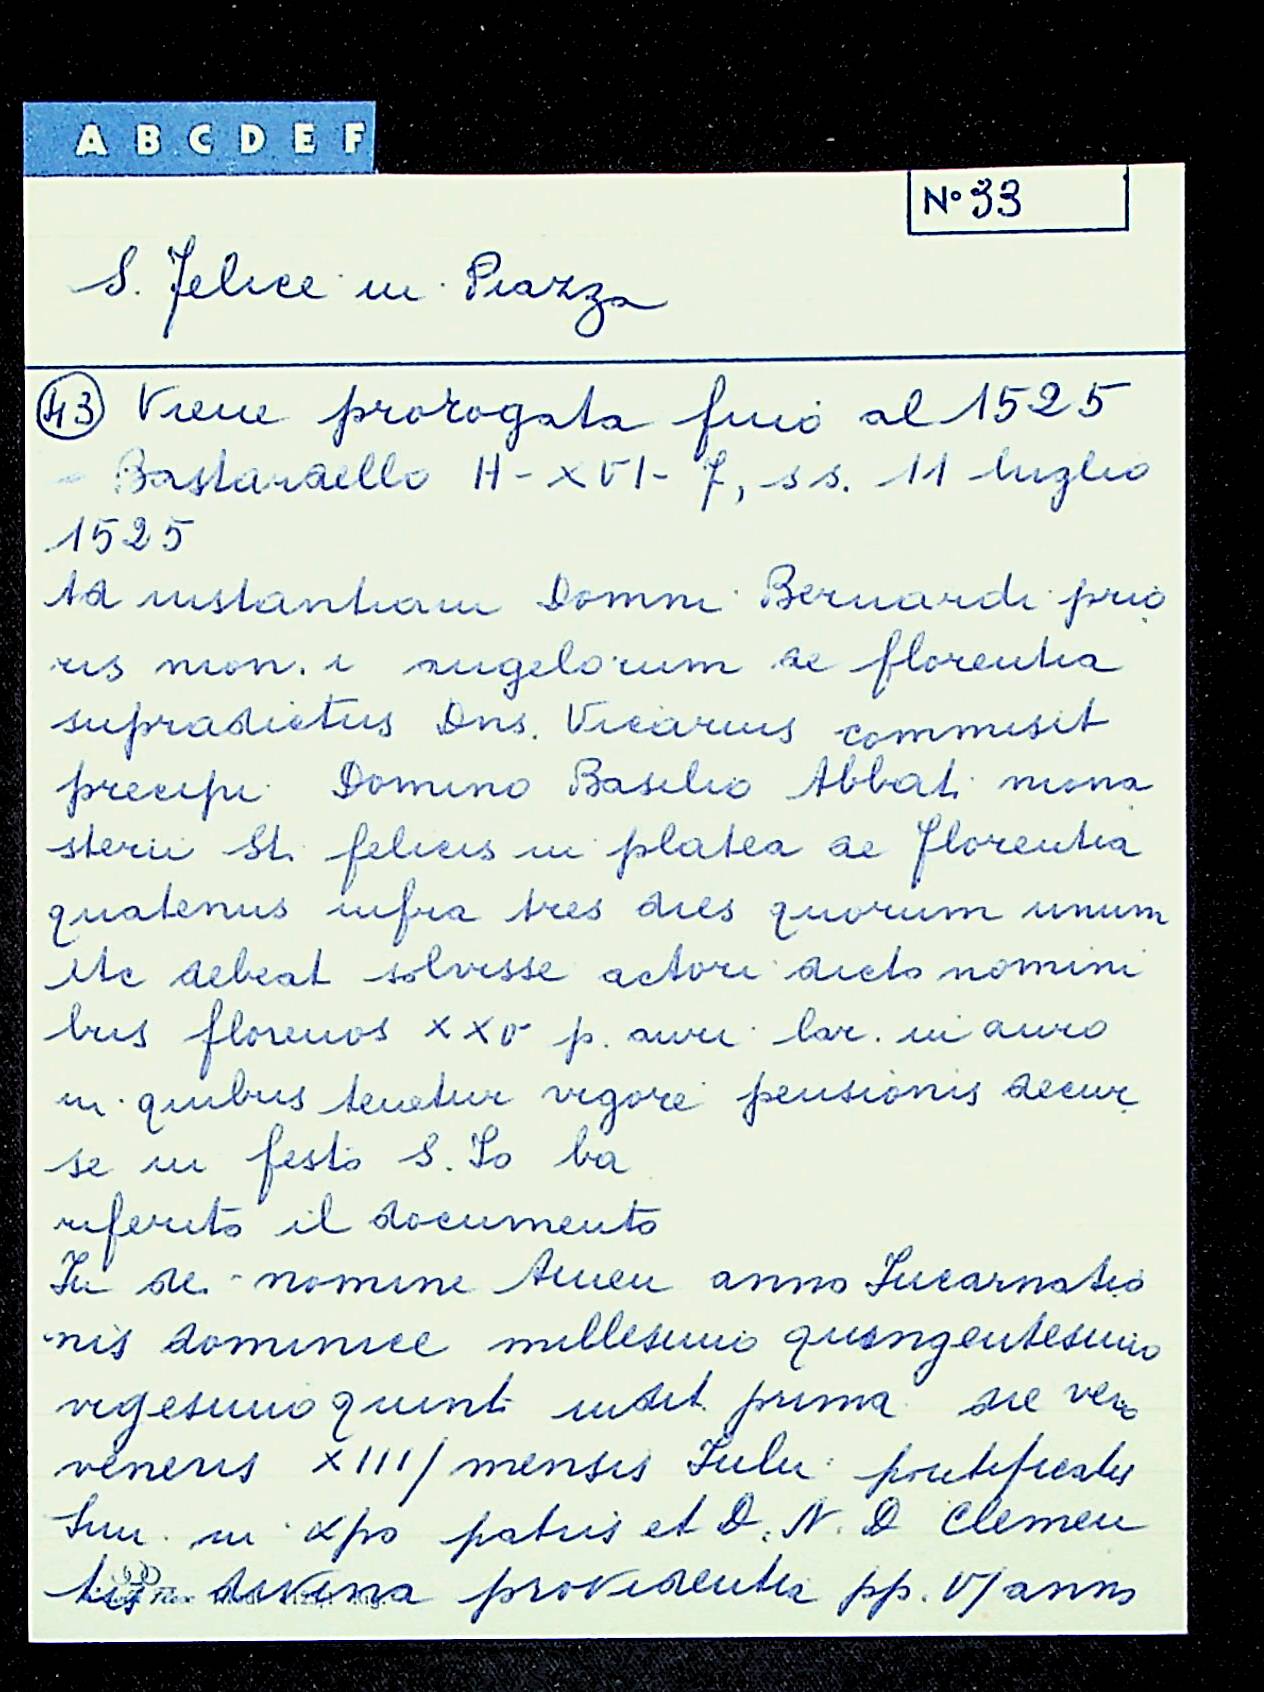 A B C D E F
N° 33
S. Felice in Piazza
43 Viene prorogata fino al 1525
- Bastardello H-XVI-7, ss. 11 luglio
1525
Ad instantiam Domni Bernardi prio
ris mon. i angelorum de florentia
supradictus Dns. Vicarius commisit
precipi Domino Basilio Abbati mona
sterii St. felicis in platea de florentia
quatenus infra tres dies quorum unum
etc debeat solvisse actori dicto nomini
bus florenos xxv p. auri lar. in auro
in quibus tenetur vigore pensionis decur
se in festo S. Jo ba
riferito il documento
In dei nomine Amen anno Incarnatio
nis dominice millesimo quingentesimo
vigesimo quint indit prima die vero
veneris XIIII mensis Iulii pontificatus
Smi in xpo patris et D. N. D Clemen
tis divina providentia pp. VI anno